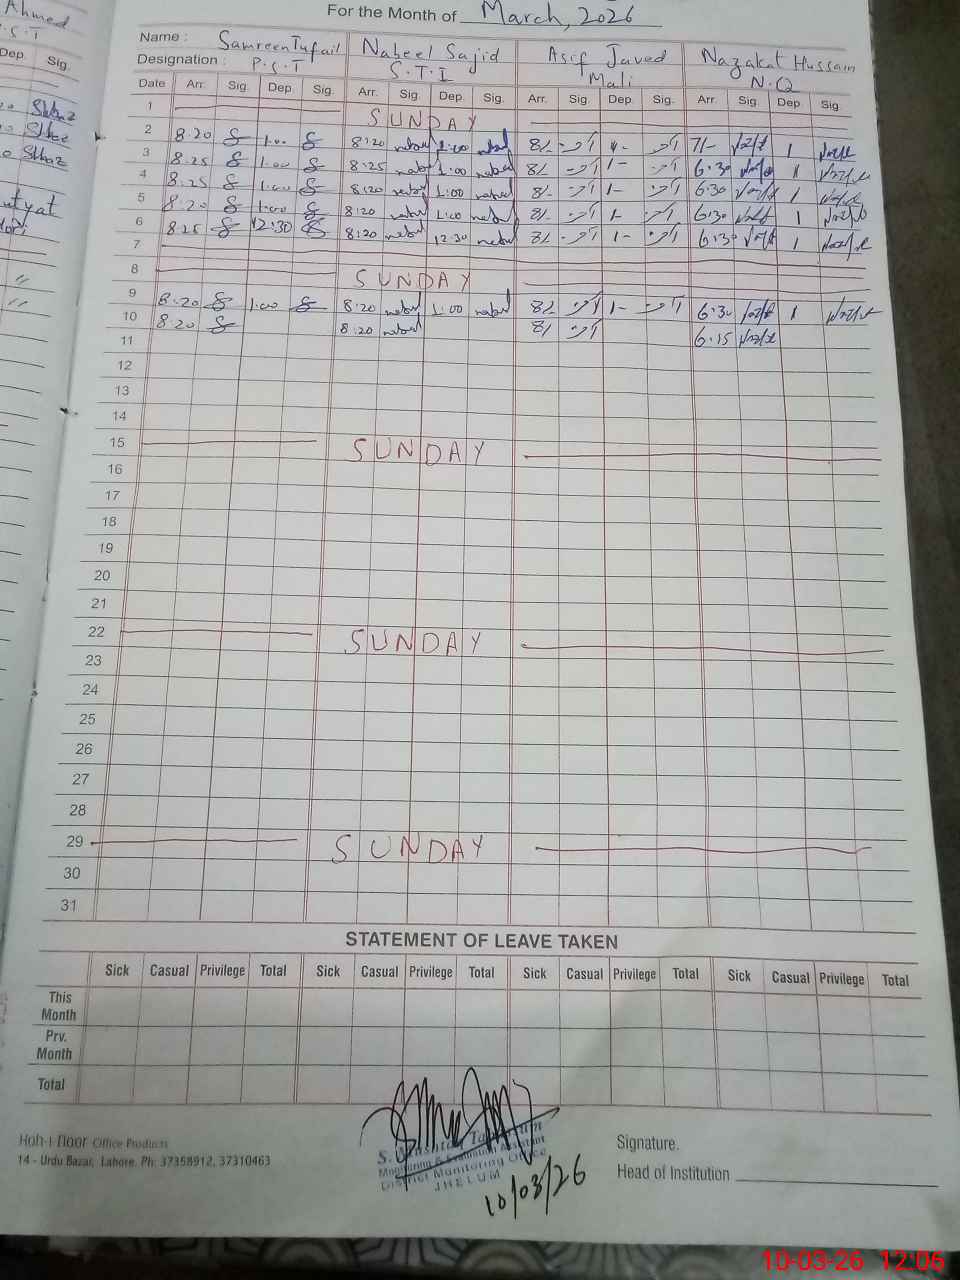 Ahmed
P.S.T
Dep. Sig.
For the Month of March, 2026
Name : Samreen Tufail Nabeel Sajid Asif Javed Nazakat Hussain
Designation : P.S.T S.T.I Mali N.Q
Date Arr. Sig. Dep. Sig. Arr. Sig. Dep. Sig. Arr. Sig. Dep. Sig. Arr. Sig. Dep. Sig.
1 SUNDAY
2 8.20 1.00 8:20 nabeel 1:00 nabeel 8/- 7/- 1
3 8.25 1.00 8:25 nabeel 1:00 nabeel 8/- 1- 6.30 1
4 8.25 1.00 8:20 nabeel 1:00 nabeel 8/- 1- 6:30 1
5 8.20 1.00 8:20 nabeel 1:00 nabeel 8/- 1- 6:30 1
6 8.25 12:30 8:20 nabeel 12:30 nabeel 8/- 1- 6:30 1
7
8 SUNDAY
9 8.20 1.00 8.20 nabeel 1:00 nabeel 8/- 1- 6.30 1
10 8.20 8:20 nabeel 8/- 6.15
11
12
13
14
15 SUNDAY
16
17
18
19
20
21
22 SUNDAY
23
24
25
26
27
28
29 SUNDAY
30
31
STATEMENT OF LEAVE TAKEN
Sick Casual Privilege Total Sick Casual Privilege Total Sick Casual Privilege Total Sick Casual Privilege Total
This Month
Prv. Month
Total
Office Products
14 - Urdu Bazar, Lahore. Ph: 37358912, 37310463
Monitoring & Evaluation Assistant
District Monitoring Office
JHELUM
10/03/26
Signature.
Head of Institution
10-03-26 12:06